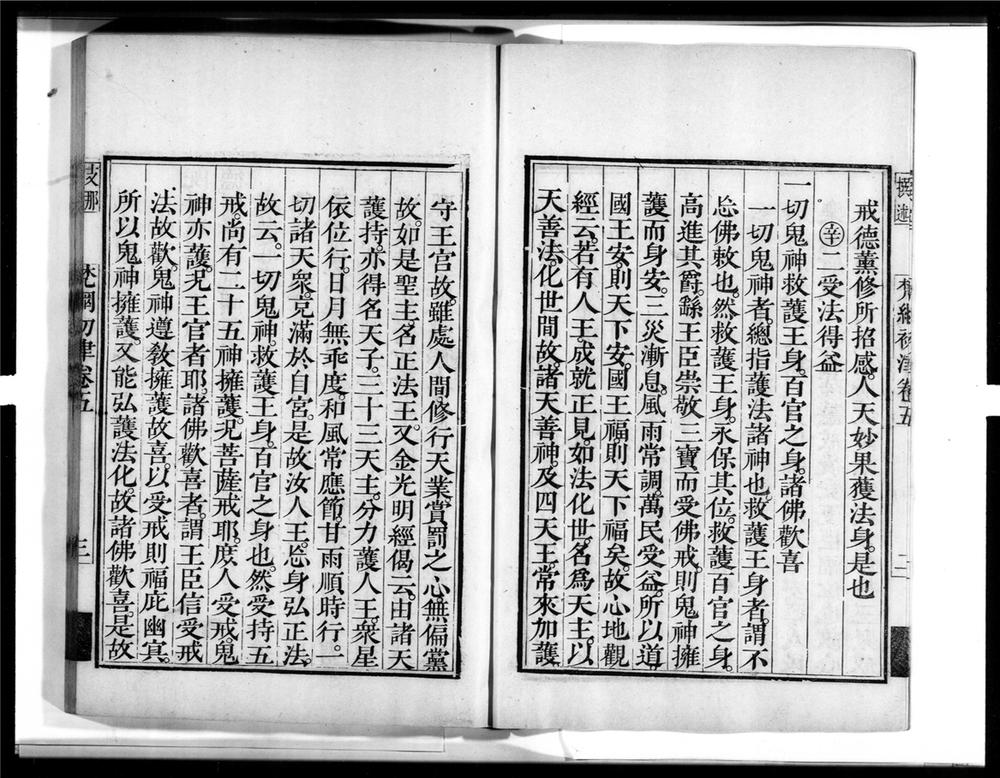 戒德薰修所招感。人天妙果獲法身。是也
㊛二受法得益
一切鬼神救護王身。百官之身。諸佛歡喜
一切鬼神者。總指護法諸神也。救護王身者。謂不
忘佛敕也。然救護王身。永保其位。救護百官之身。
高進其爵。繇王臣崇敬三寶而受佛戒。則鬼神擁
護而身安。三災漸息。風雨常調。萬民受益。所以道
國王安。則天下安。國王福則天下福矣。故心地觀
經云。若有人王。成就正見。如法化世。名爲天主。以
天善法。化世間故。諸天善神。及四天王。常來加護
守王宮故。雖處人間修行天業賞罰之心。無偏黨
故。如是聖主名正法王。又金光明經偈云。由諸天
護持。亦得名天子。三十三天主。分力護人王。衆星
依位行。日月無乖度。和風常應節。甘雨順時行。一
切諸天衆。充滿於自宮。是故汝人王。忘身弘正法。
故云。一切鬼神。救護王身。百官之身也。然受持五
戒。尚有二十五神擁護。况菩薩戒耶。庶人受戒。鬼
神亦護。况王官者耶。諸佛歡喜者。謂王臣信受戒
法故歡。鬼神遵敎擁護故喜。以受戒則福庇幽㝠。
所以鬼神擁護。又能弘護法化。故諸佛歡喜。是故
卷五
二
支那
卷五
三